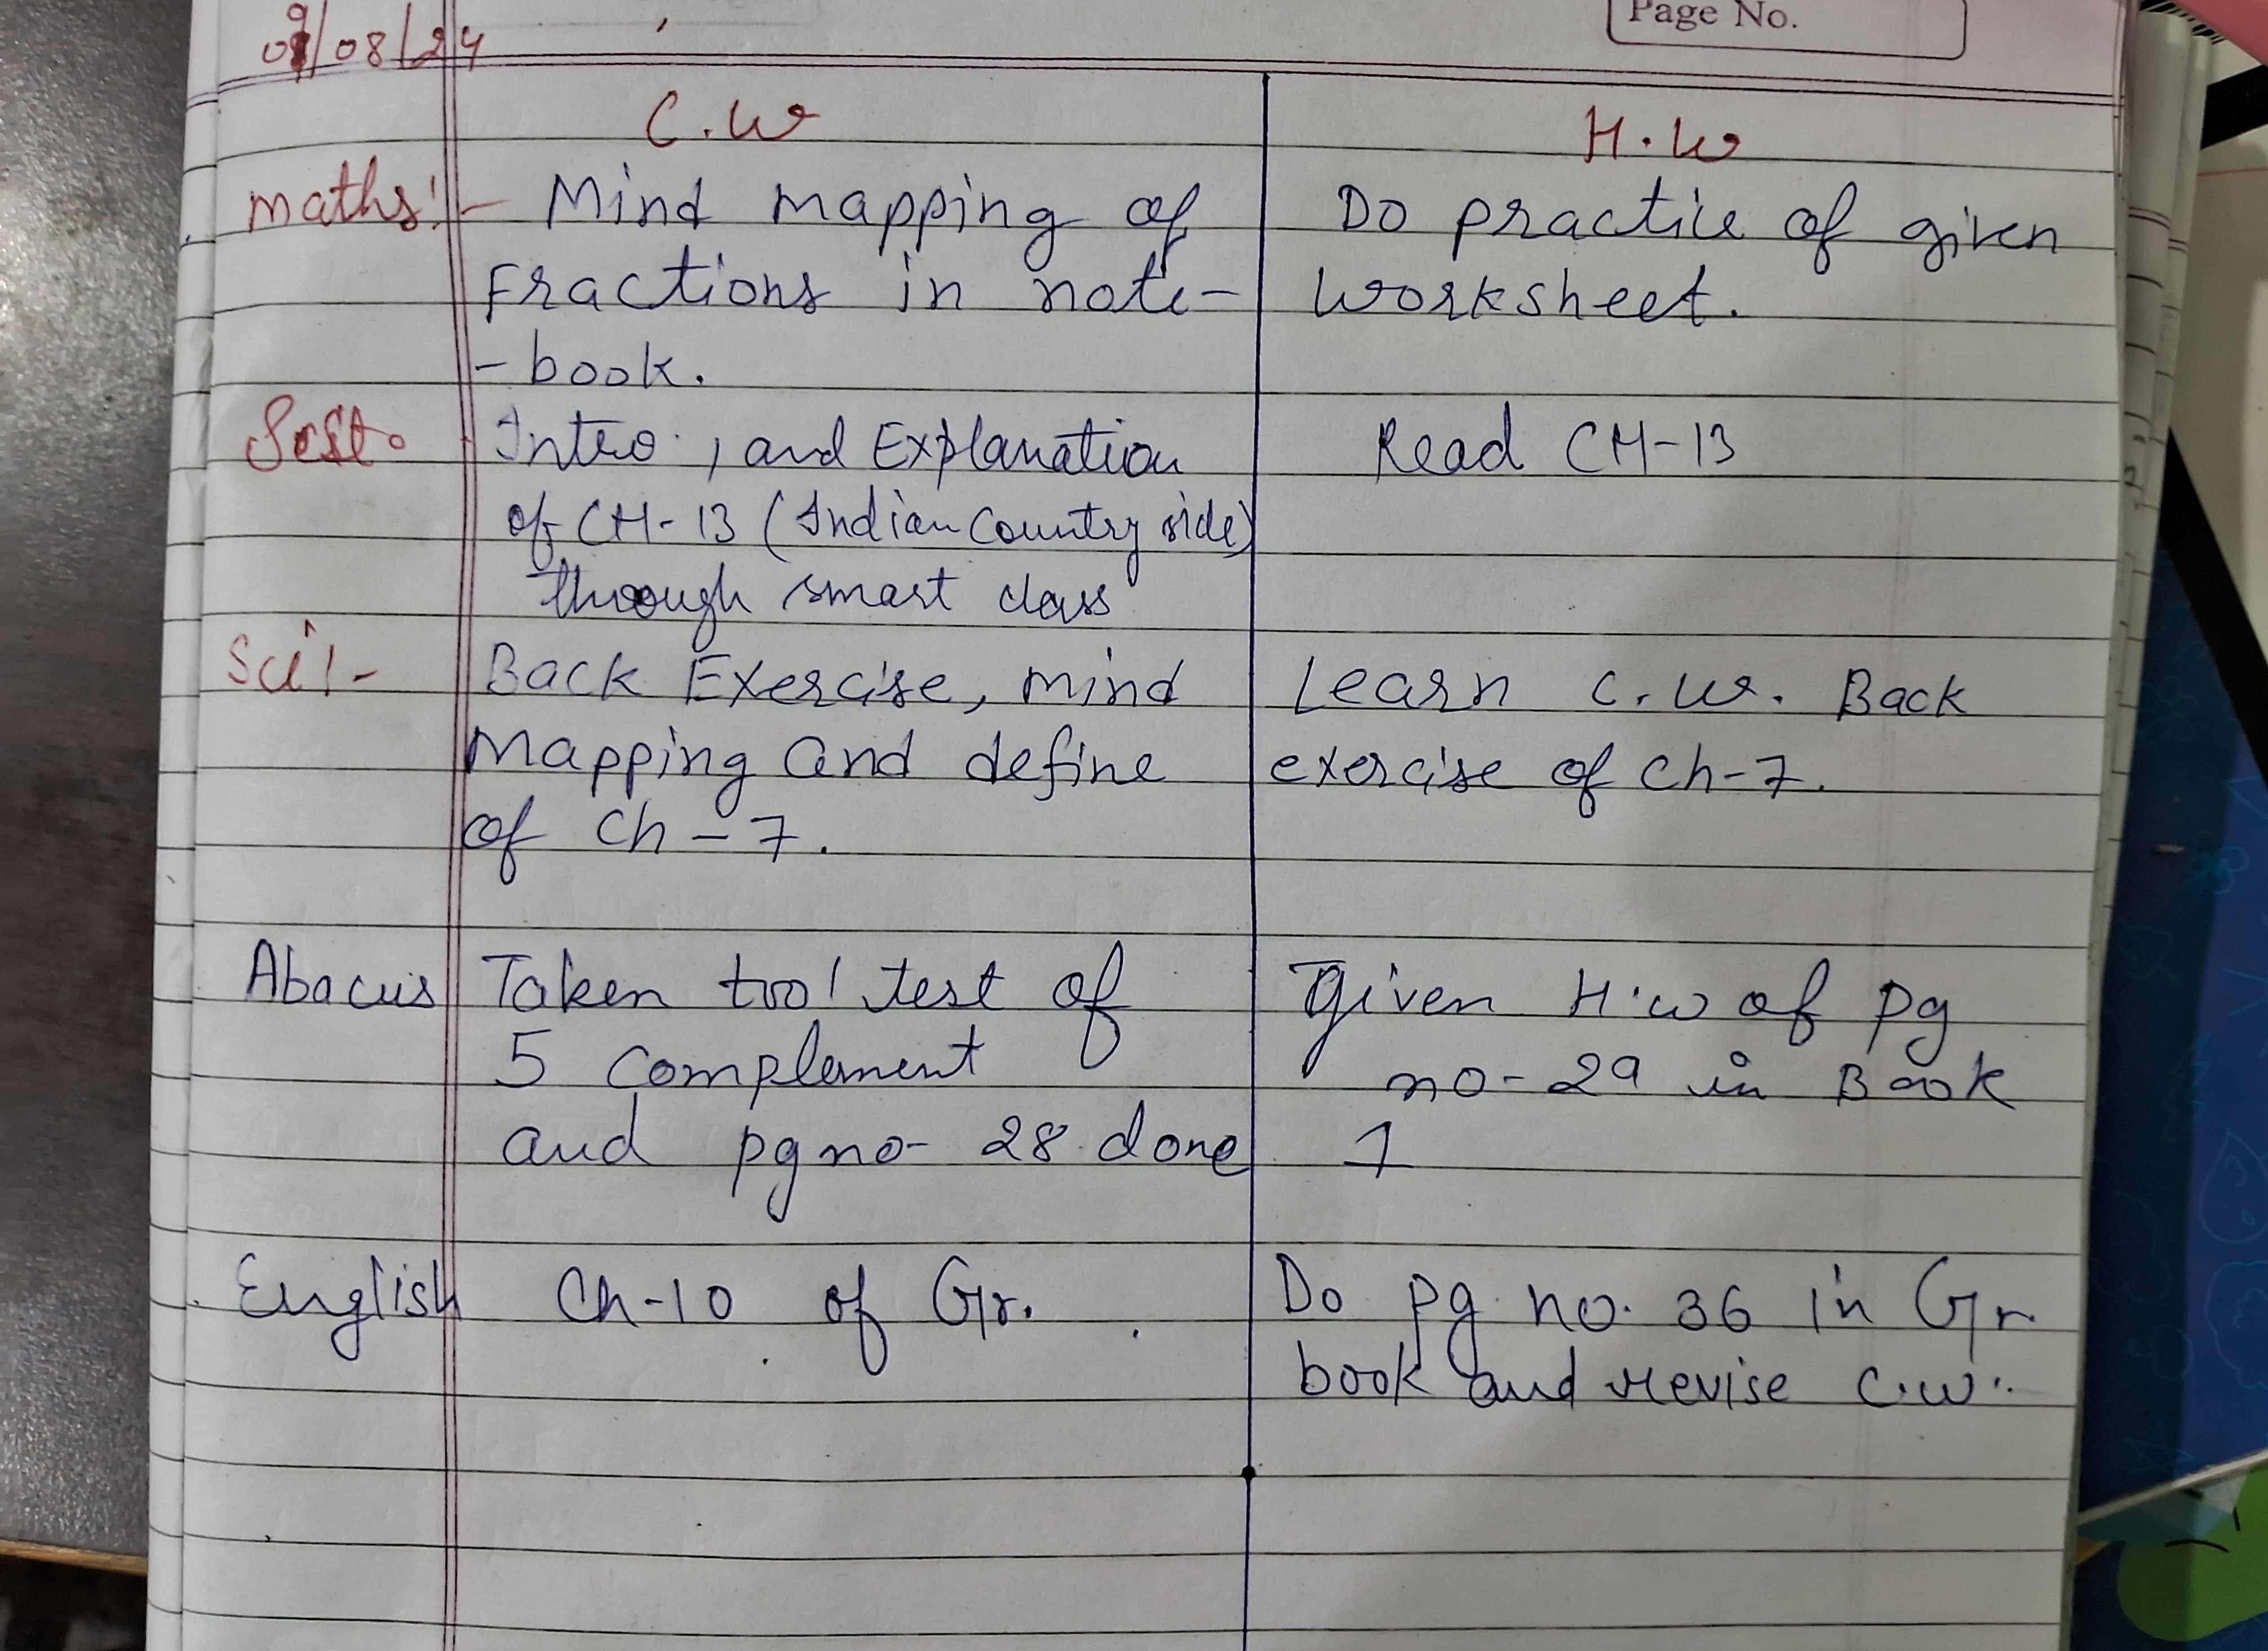 Page No.
09/08/24
C.W
H.W
Maths:- Mind mapping of
Fractions in note-
-book.
Do practice of given
worksheet.
S.St. Intro., and Explanation
of CH-13 (Indian Country side)
through smart class
Read CH-13
Sci:- Back Exercise, mind
Mapping and define
of Ch-7.
Learn C.W. Back
exercise of Ch-7.
Abacus Taken tool test of
5 complement
and pg no- 28 done
Given H.W of pg
no- 29 in Book
1
English Ch-10 of Gr.
Do pg no. 36 in Gr
book and revise C.W.